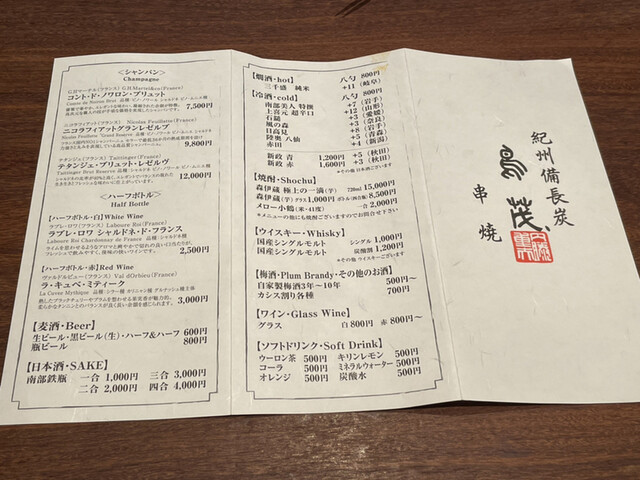 <シャンパン>
Champagne
G.Hマーテル(フランス) G.H Martel&co(France)
コント・ド・ノワロン・ブリュット
7,500円
ニコラフィアット(フランス) Nicolas Feuillatte(France)
ニコラフィアットグランレゼルブ
9,800円
テタンジェ(フランス) Taittinger(France)
テタンジェ・ブリュット・レゼルヴ
12,000円
<ハーフボトル>
Half Bottle
【ハーフボトル・白】White Wine
ラブレ・ロワ(フランス) Laboure Roi(France)
ラブレ・ロワ シャルドネ・ド・フランス
Laboure Roi Chardonnay de France 品種:シャルドネ種
2,500円
【ハーフボトル・赤】Red Wine
ヴァルドルビュー(フランス) Val d'Orbieu(France)
ラ・キュベ・ミティーク
3,000円
【麦酒・Beer】
生ビール・黒ビール(生)・ハーフ&ハーフ 600円
瓶ビール 800円
【日本酒・SAKE】
南部鉄瓶 一合 1,000円 三合 3,000円
二合 2,000円 四合 4,000円
【燗酒・hot】 八勺 800円
三千盛 純米 +11 (岐阜)
【冷酒・cold】 八勺 800円
南部美人 特撰 +7 (岩手)
上喜元 超辛口 +12 (山形)
石鎚 +3 (愛媛)
風の森 +3 (奈良)
日高見
陸奥 八仙 +5 (青森)
赤田 +4 (新潟)
新政 青 1,200円 +5 (秋田)
新政 赤 1,600円 +3 (秋田)
*その他 日本酒ございます
【焼酎・Shochu】
森伊蔵 極上の一滴) 720ml 15,000円
森伊蔵) グラス 1,000円 8,500円
メロー小鶴(米・41度) 2,000円
*メニューの他にも焼酎ございますのでお問合せ下さい
【ウイスキー・Whisky】
国産シングルモルト シングル 1,000円
国産シングルモルト 炭酸割 1,200円
*その他 ウイスキーございます
【梅酒・Plum Brandy・その他のお酒】
自家製梅酒3年〜10年 500円
カシス割り各種 700円
【ワイン・Glass Wine】
グラス 白 800円 赤 800円〜
【ソフトドリンク・Soft Drink】
ウーロン茶 500円 キリンレモン 500円
コーラ 500円 ミネラルウォーター 500円
オレンジ 500円 炭酸水 500円
紀州備長炭
串焼